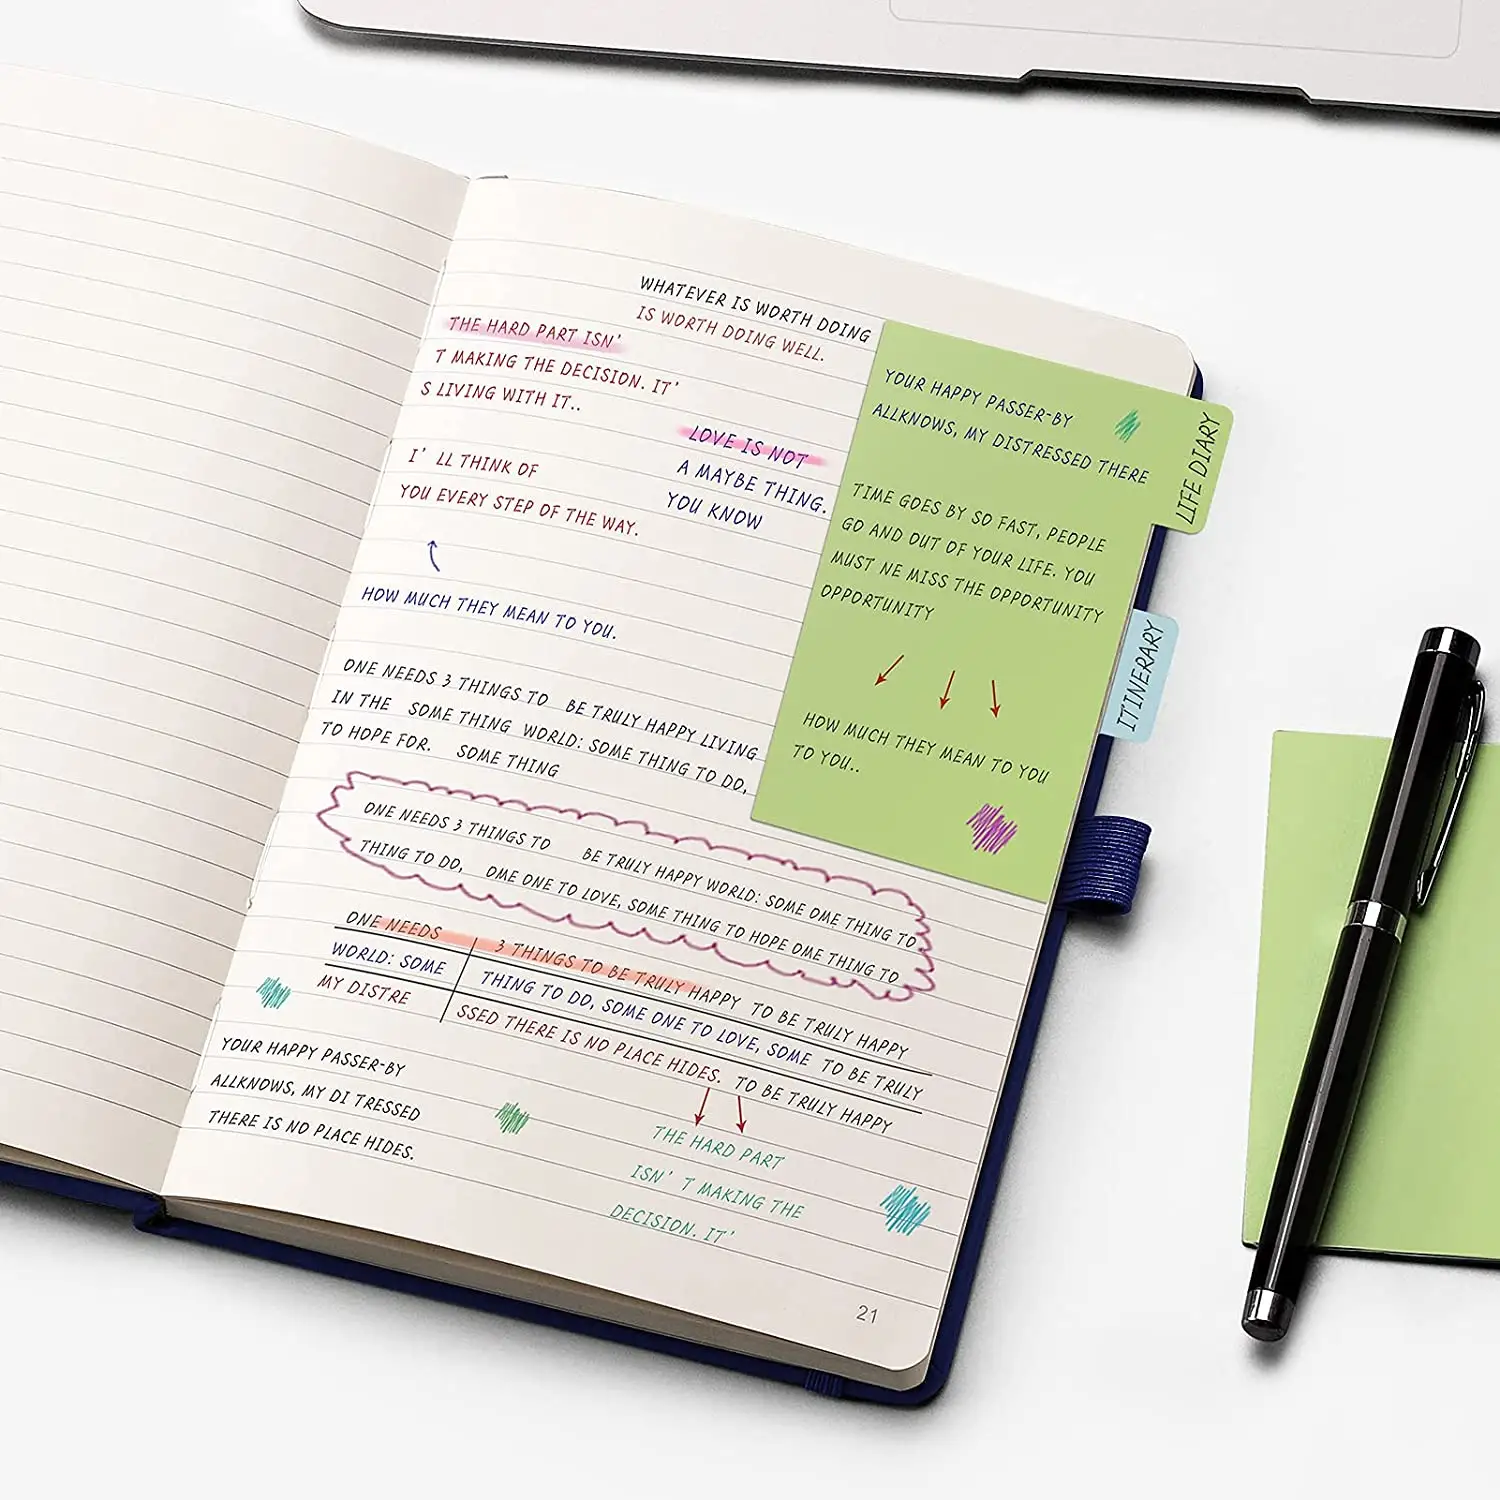 WHATEVER IS WORTH DOING
IS WORTH DOING WELL.
THE HARD PART ISN'
T MAKING THE DECISION. IT'
S LIVING WITH IT..
LOVE IS NOT
A MAYBE THING.
YOU KNOW
I' LL THINK OF
YOU EVERY STEP OF THE WAY.
HOW MUCH THEY MEAN TO YOU.
ONE NEEDS 3 THINGS TO BE TRULY HAPPY LIVING
IN THE SOME THING WORLD: SOME THING TO DO,
TO HOPE FOR. SOME THING
ONE NEEDS 3 THINGS TO BE TRULY HAPPY WORLD: SOME OME THING TO
THING TO DO, OME ONE TO LOVE, SOME THING TO HOPE OME THING TO
ONE NEEDS 3 THINGS TO BE TRULY HAPPY TO BE TRULY HAPPY
WORLD: SOME THING TO DO, SOME ONE TO LOVE, SOME TO BE TRULY
MY DISTRE SSED THERE IS NO PLACE HIDES. TO BE TRULY HAPPY
YOUR HAPPY PASSER-BY
ALLKNOWS, MY DI TRESSED
THERE IS NO PLACE HIDES.
THE HARD PART
ISN' T MAKING THE
DECISION. IT'
21
YOUR HAPPY PASSER-BY
ALLKNOWS, MY DISTRESSED THERE
TIME GOES BY SO FAST, PEOPLE
GO AND OUT OF YOUR LIFE. YOU
MUST NE MISS THE OPPORTUNITY
OPPORTUNITY
HOW MUCH THEY MEAN TO YOU
TO YOU..
LIFE DIARY
ITINERARY